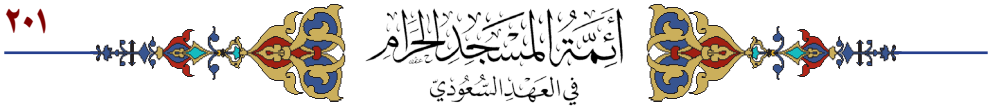 ٢٠١
أَئِمَّةُ المَسْجِدِ الحَرَامِ
فِي العَهْدِ السُّعُودِيِّ